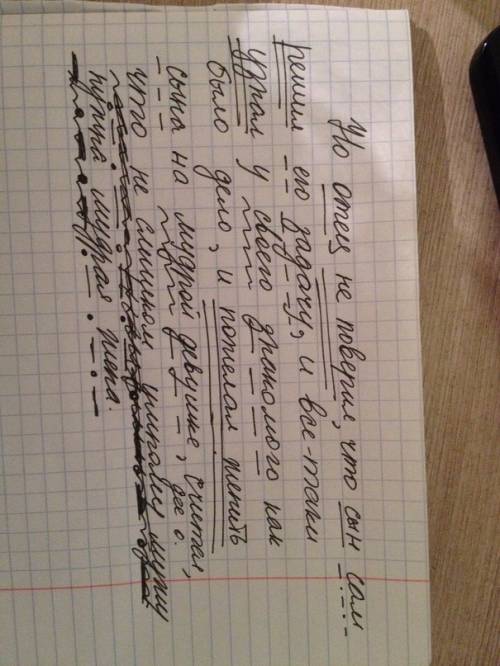 Но отец не поверил, что сын сам
решил его задачу, и все-таки
узнал у своего знакомого как
было дело, и пожелал женить
сына на мудрой девушке, считая,
что не слишком умному мужу
нужна мудрая жена.